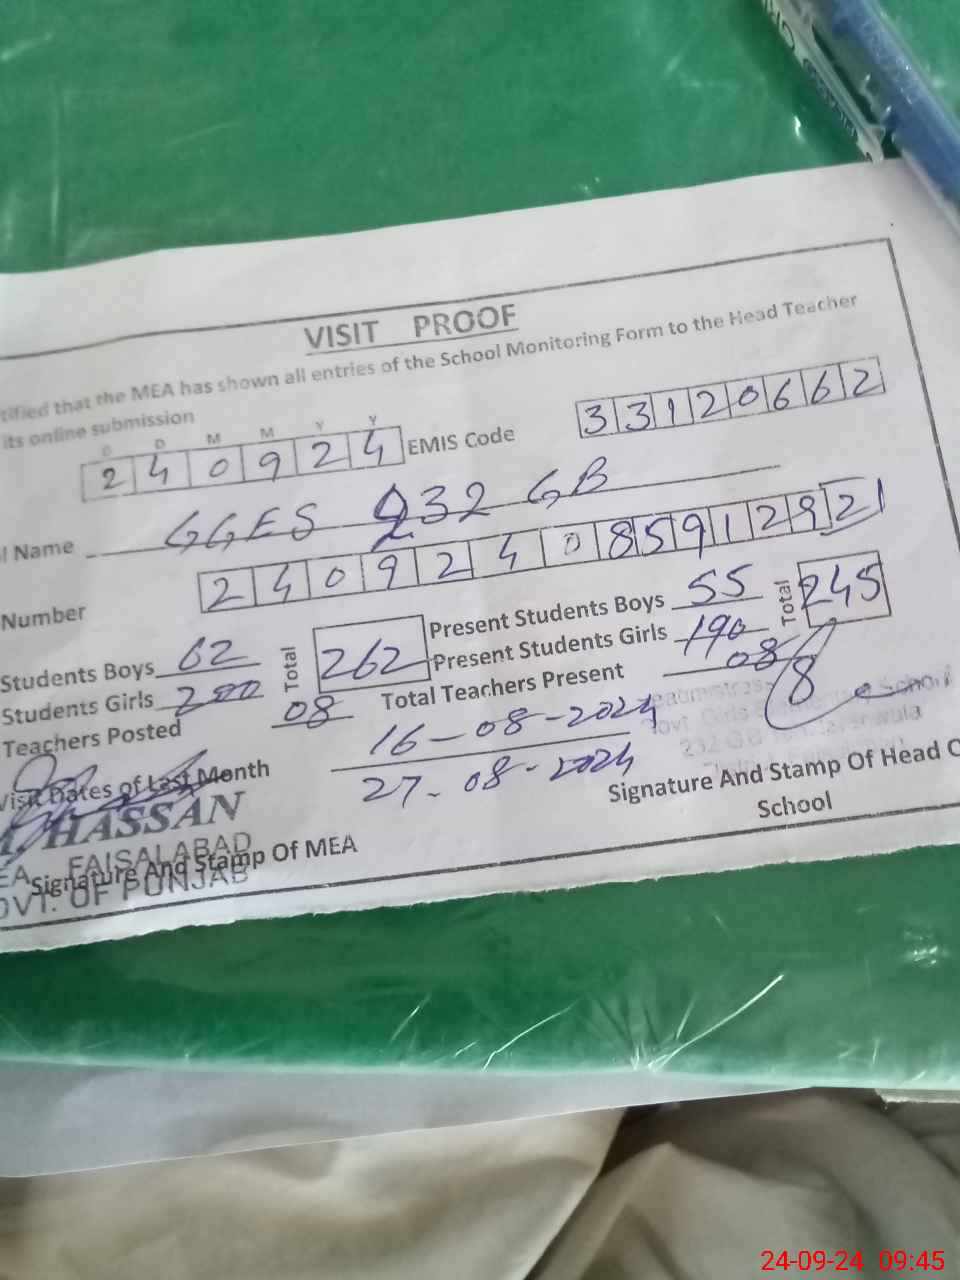 VISIT PROOF
tified that the MEA has shown all entries of the School Monitoring Form to the Head Teacher
its online submission
D D M M Y Y
240924 EMIS Code 33120662
l Name GGES 232 GB
Number 240924085912921
Students Boys 62 Total 262 Present Students Boys 55 Total 245
Students Girls 200 Present Students Girls 190
Teachers Posted 08 Total Teachers Present 08
Visit Dates of Last Month 16-08-2024
27-08-2024
HASSAN
EA FAISALABAD
OVT. OF PUNJAB
Signature And Stamp Of MEA
Signature And Stamp Of Head O
School
232 GB
24-09-24 09:45